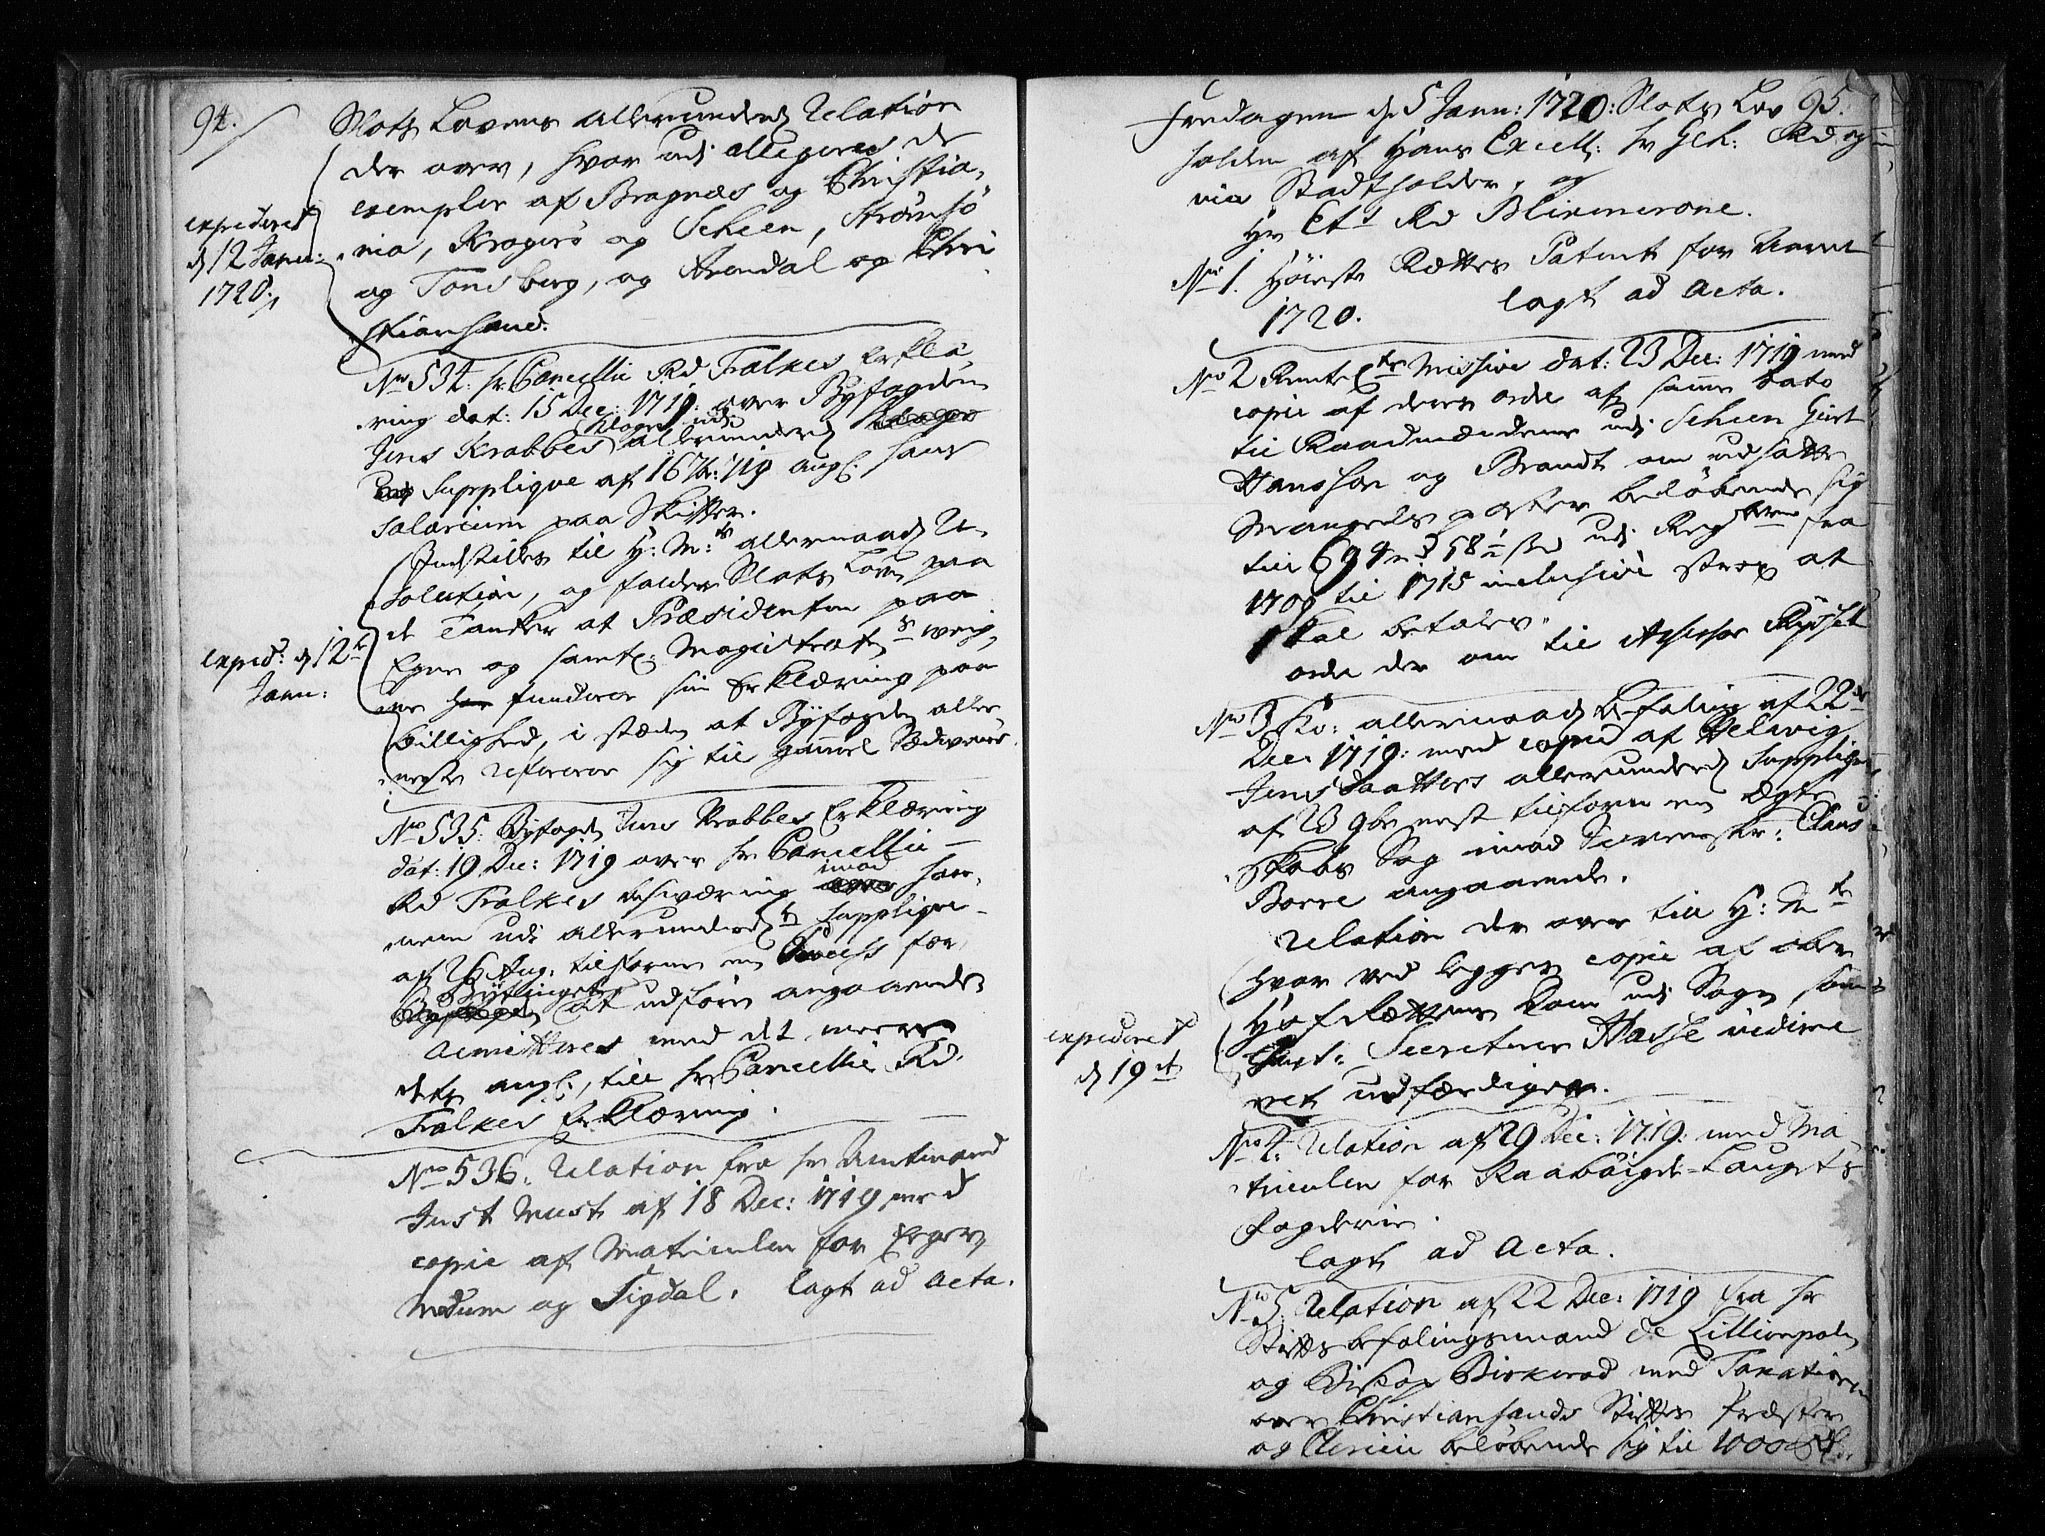 94.
Slots Lovens allerunderd. Relation
der over, hvor udi allegeres de
exempler af Bragnæs og Christia-
nia, Kragerø og Scheen, Strømsø
og Tonsberg, og Arendal og Chri
stiansand.
expederet
d 12 Janu:
1720.
No 534. hr Cancellie Rd Falkes Erklæ-
ring dat: 15 Dec: 1719. over Byfogden
Jens Krabbes allerunderd Klage udi
Supplique af 16 719 angl. hans
Salarium paa Skifter.
Indstilles til H: M:ts allernaad. Re-
solution, og falder Slots Loven paa
de Tanker at Præsidenten paa
Egne og samtl: Magistratens veig-
ne funderer sin Erklæring paa
billighed, i stæden at Byfogden aller
meest refererer sig til gammel Sædvane.
exped: d 12te
Janu:
No 535. Byfogd Jens Krabbes Erklæring
dat: 19 Dec: 1719 over hr Cancellie
Rd Falkes besværing imod ham,
udi allerunderd. Supplique
af 26 Aug: tilforne en Process for
Bytinget at udføre angaaende
remitteres med det meere
dets angl., till hr Cancellie Rd.
Falkes Erklæring.
No 536. Relation fra hr Amtmand
Just Must af 18 Dec: 1719 med
copie af Matriculen for Eger,
Modum og Sigdal. lagt ad acta.
95.
Fredagen d 5 Janu: 1720. Slots Lov
holden af Hans Excell: hr Geh: Rd og
Stadtholder, og
Hr Ets Rd Blixencrone.
No 1. Høieste Rettes Patent for Aaret
1720. lagt ad Acta.
No 2 Rente Cts Missive dat: 23 Dec: 1719 med
copie af deres ordre af samme dato
til Raadmændene udi Scheen Giert
Hansson og Brandt om udsatte
Mangels poster beløbende sig
til 694 rd 58 1/2 s udi Regskberne fra
1709 til 1715 inclusive strax at
skal betales.
ordre der om til Assessor Rysset
No 3 Ko: allernaad. Befaling af 22de
Dec: 1719. med copie af Helwig
Jens Daatters allerunderd. Supplique
af 23 9br nest tilforn en Ægte-
skabs Sag imod Claus
Borre angaaende.
Relation der over till H: Mts
hvor ved legges copie af ober
Hof Rettens Dom udi Sagen, som
Just: Secreterer Hasse vidime
ret udfærdiger.
expederet
d 19de
No 4. Relation af 29 Dec: 1719. med Ma
triculen for Raabøigde-Laugets
Fogderie.
lagt ad Acta.
No 5. Relation af 22 Dec: 1719 fra hr
Stiftsbefalingsmand de Lillienpalm
og Biskop Birkerod med Taxationen
over Christiansands Stiftes Præster
og Clerici beløbende sig til 1000